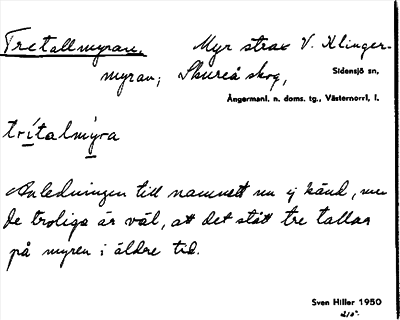 Tretallmyran. Myr strax V. Klinger-
myran; Skureå skog,
Sidensjö sn,
Ångermanl. n. doms. tg., Västernorrl. l.
trítalmýra
Anledningen till namnet nu ej känd, men
de troliga är väl, att det stått tre tallar
på myren i äldre tid.
Sven Hiller 1950